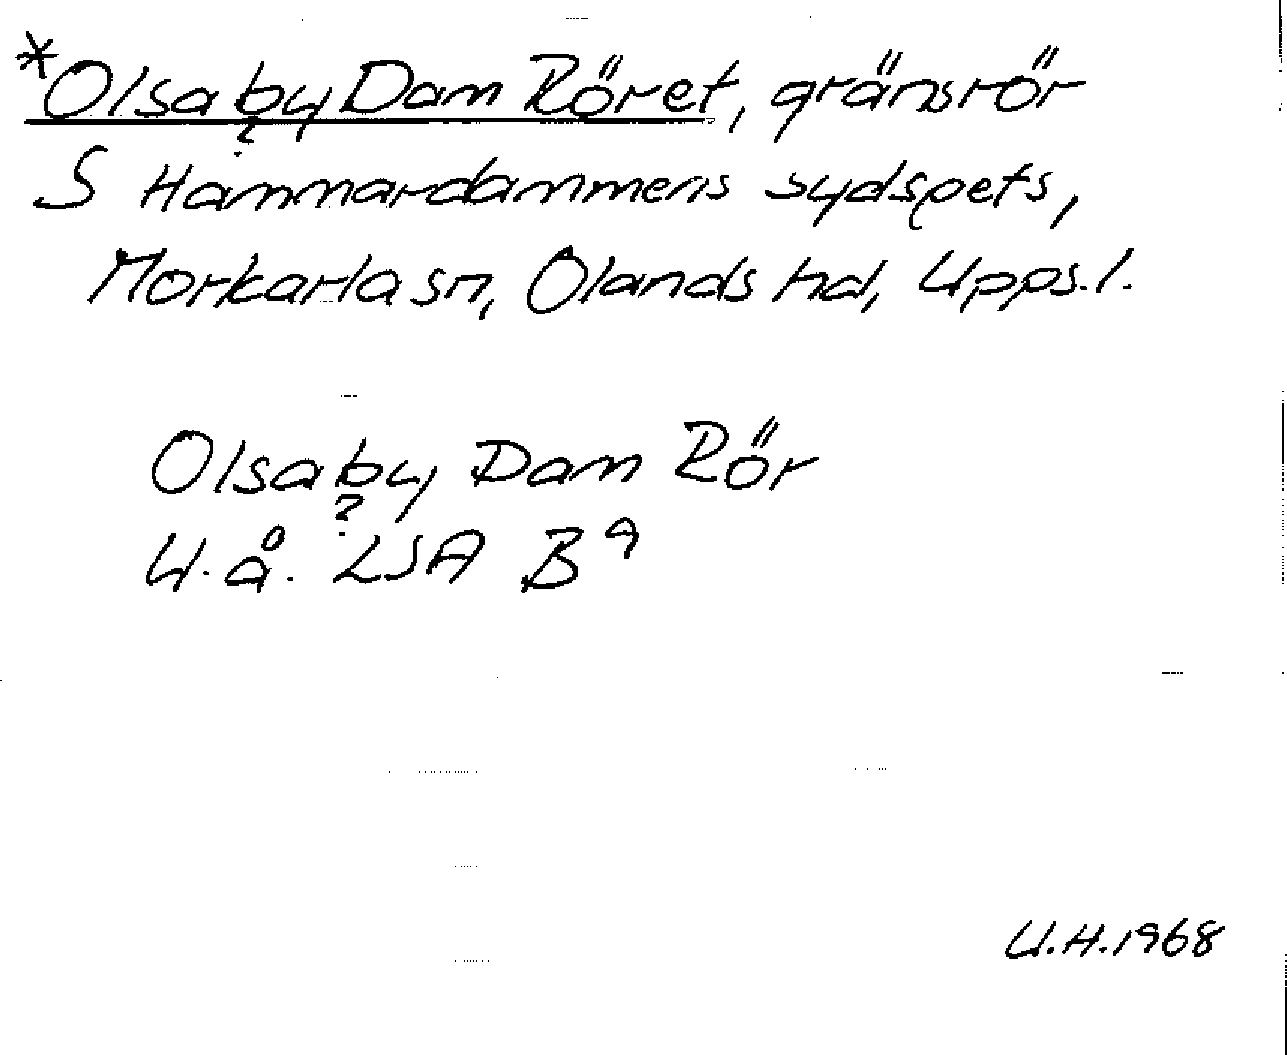 *Olsaby Dam Röret, gränsrör
?
S Hammardammens sydspets,
Morkarla sn, Olands hd, Upps.l.
Olsaby Dam Rör
?
U.å. LSA B9
U.H.1968